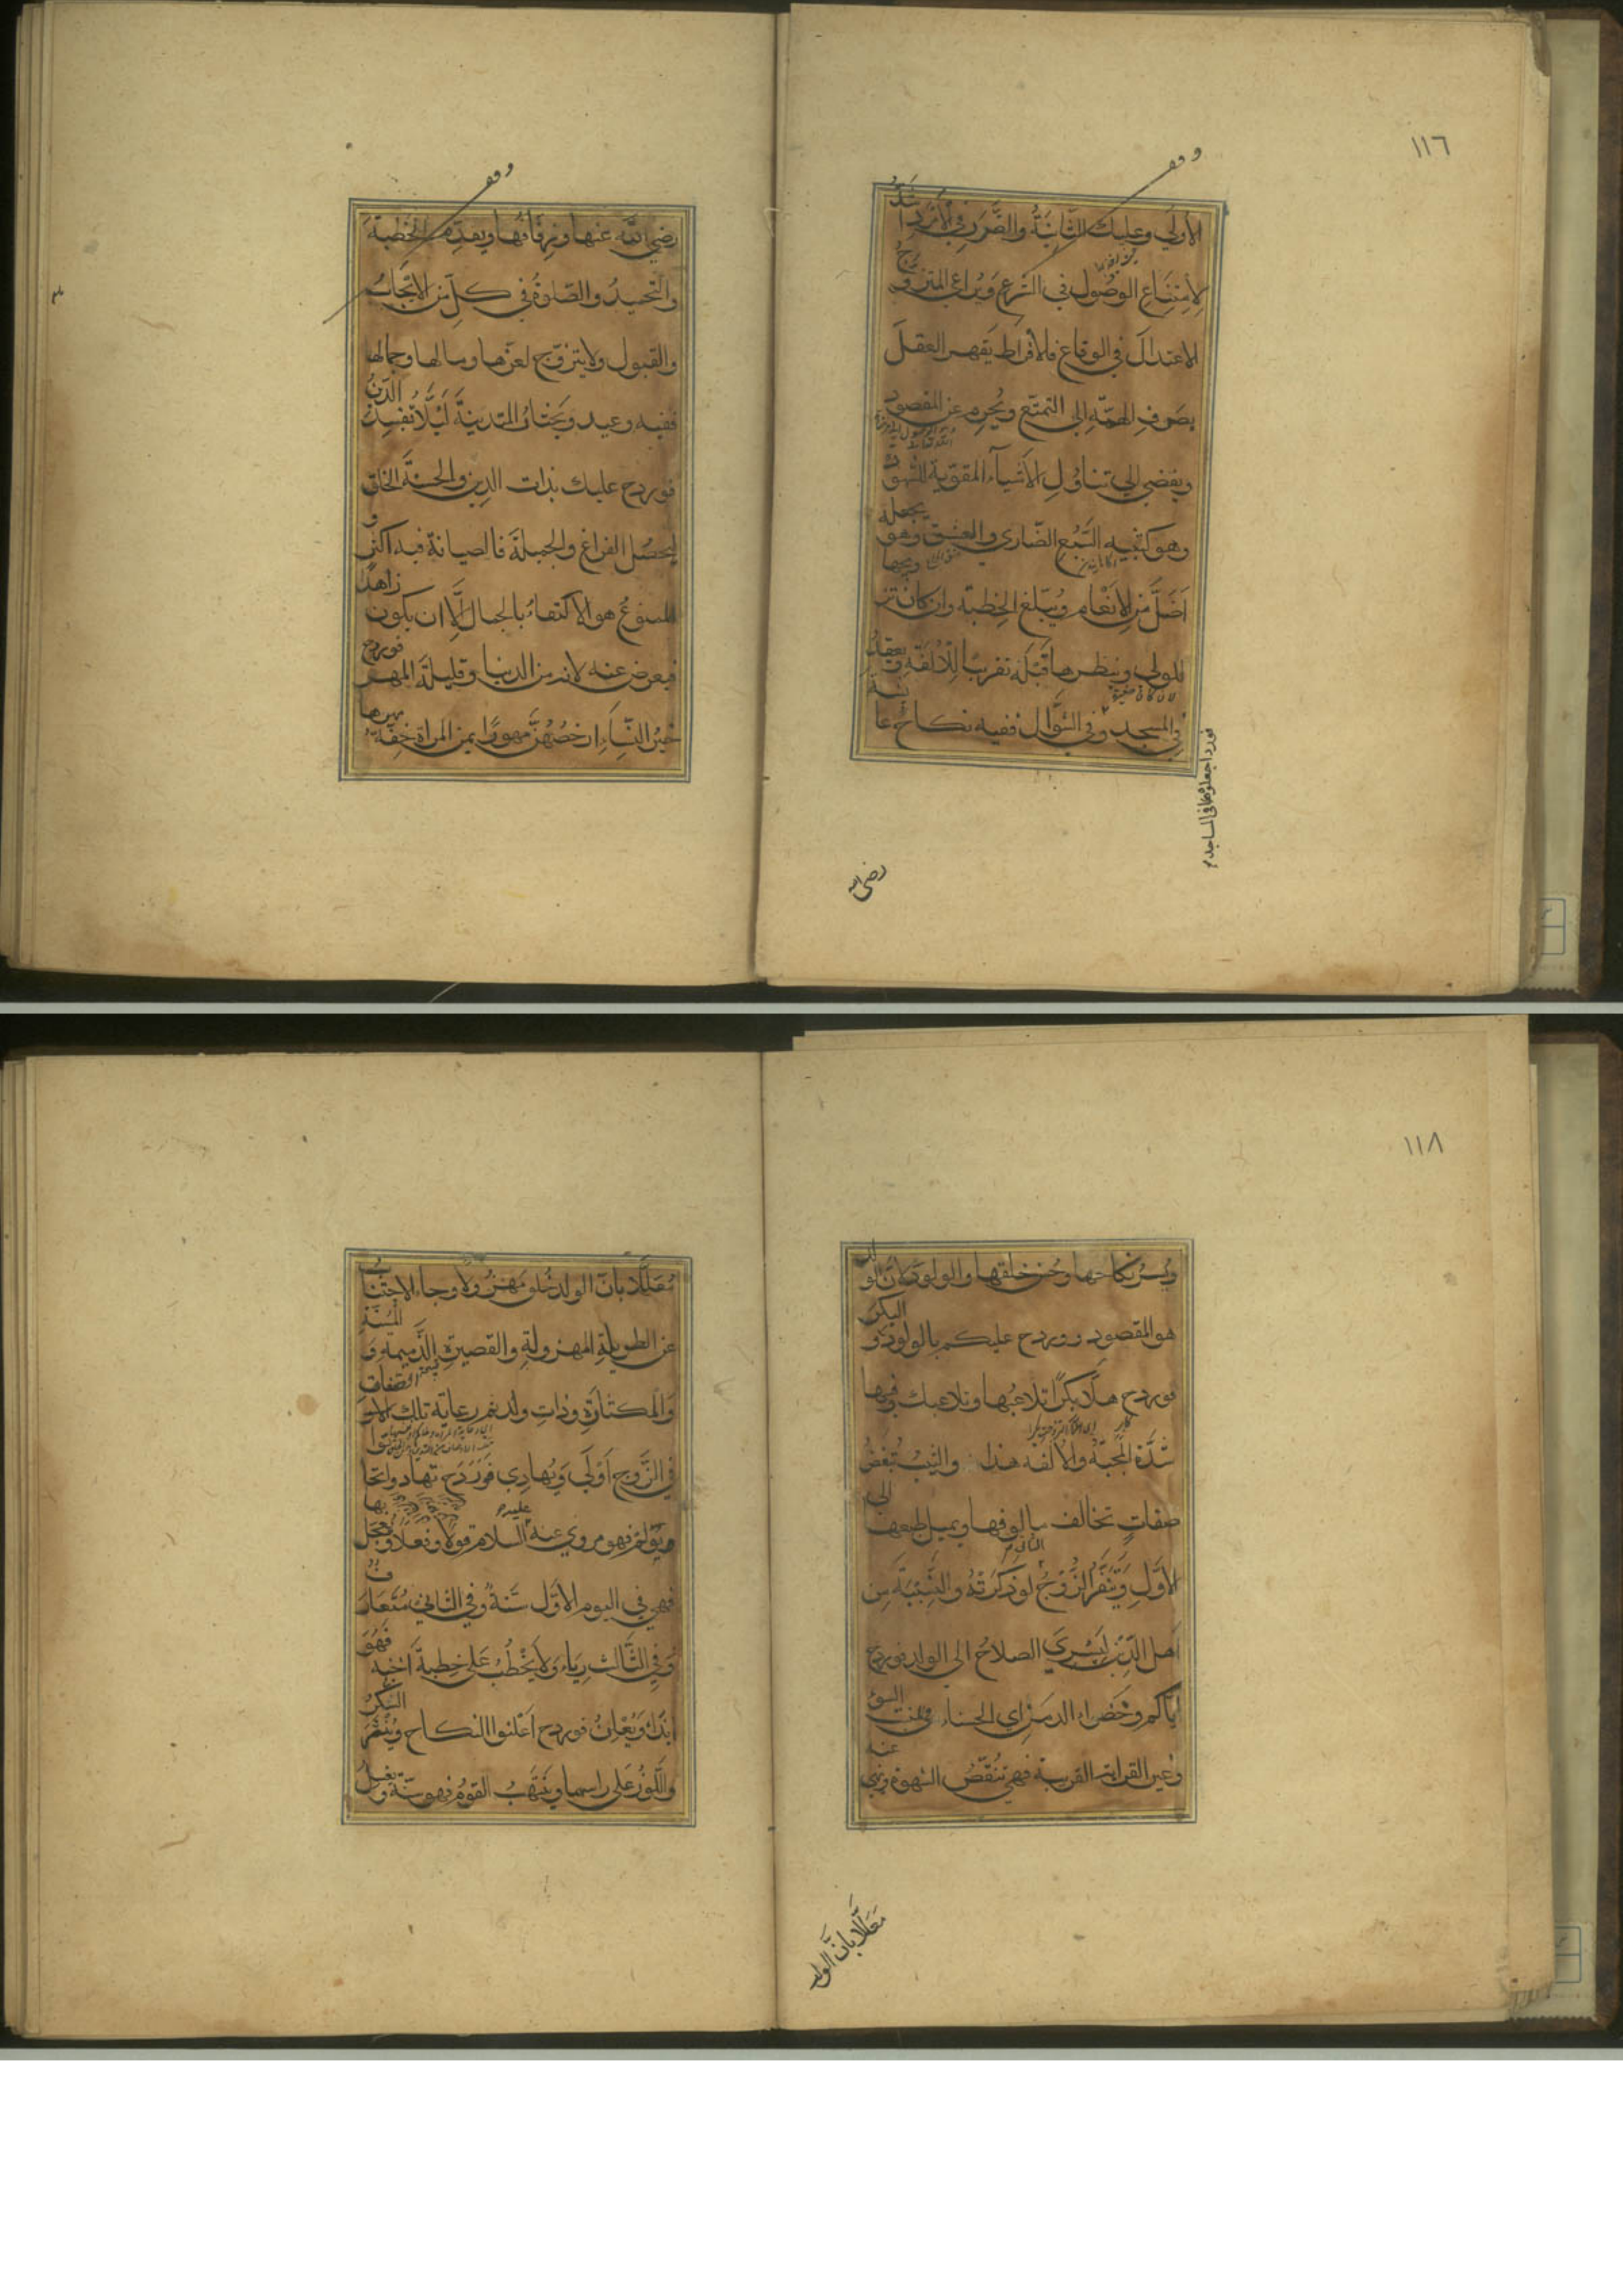 ١١٦
وقف
الأولى وعليك الثانية والضرر في الأمرد اشد
لامتناع الوصول في الشرع ويراعي المتزوج
الاعتدال في الوقاع فالافراط يقهر العقل
بصرف الهمة الى التمتع ويحرم عن المقصود
ويفضي الى تناول الأشياء المقوية للشهوة
وهو كتنبيه السبع الضاري والعشق وهو يجعله
اضل من الانعام ويبلغ الخطبة وان كان
للولي وينظرها قبله تقربا للألفة ويعقد
في المسجد وفي الشوال ففيه نكاح عا
فورد اجعلوها في المساجد
رضي الله
وقف
رضي الله عنها وزفافها ويقدم الخطبة
والتحميد والصلوة في كل من الايجاب
والقبول ولا يتزوج لعزها ومالها وجمالها
ففيه وعيد ويختار المتدينة لئلا تفسد الدين
فورد ح عليك بذات الدين والحسنة الخلق
ليحصل الفراغ والجميلة فالصيانة فيه اكثر و
الممنوع هو الاكتفاء بالجمال الا ان يكون زاهدا
فيعرض عنه لانه من الدنيا وقليلة المهر فورد ح
خير النساء ارخصهن مهورا يمن المراة خفة مهرها
١١٨
ويسر نكاحها وحسن خلقها والولود فان الولد
هو المقصود وورد ح عليكم بالولود و البكر
فورد ح هلا بكرا تلاعبها وتلاعبك وفيها
شدة المحبة والالفة هذا والثيب تبغض
صفات تخالف مالوفها ويميل طبعها الى
الأول ويتنفر الزوج لو ذكرته والنسيبة من
اهل الدين ليسري الصلاح الى الولد فورد ح
اياكم وخضراء الدمن اي الحسناء في منبت السوء
وغير القرابة القريبة فهي تنقص الشهوة ونهي عنه
معللا بان الولد
معللا بان الولد خلق مهزولا وجاء الاجتناب
عن الطويلة المهزولة والقصيرة الذميمة و المسنة
والمكثارة وذات ولد ثم رعاية تلك الصفات
في الزوج اولى ويهادي فورد ح تهادوا تحابوا
ويؤلم فهو مروي عنه عليه السلام قولا وفعلا ويعجل بها
فهي في اليوم الأول سنة وفي الثاني متعارف
وفي الثالث رياء ولا يخطب على خطبة اخيه فهو
ايذاء ويعلن فورد ح اعلنوا النكاح وينثر السكر
واللوز على راسهما وينتهب القوم فهو سنة ويغسل